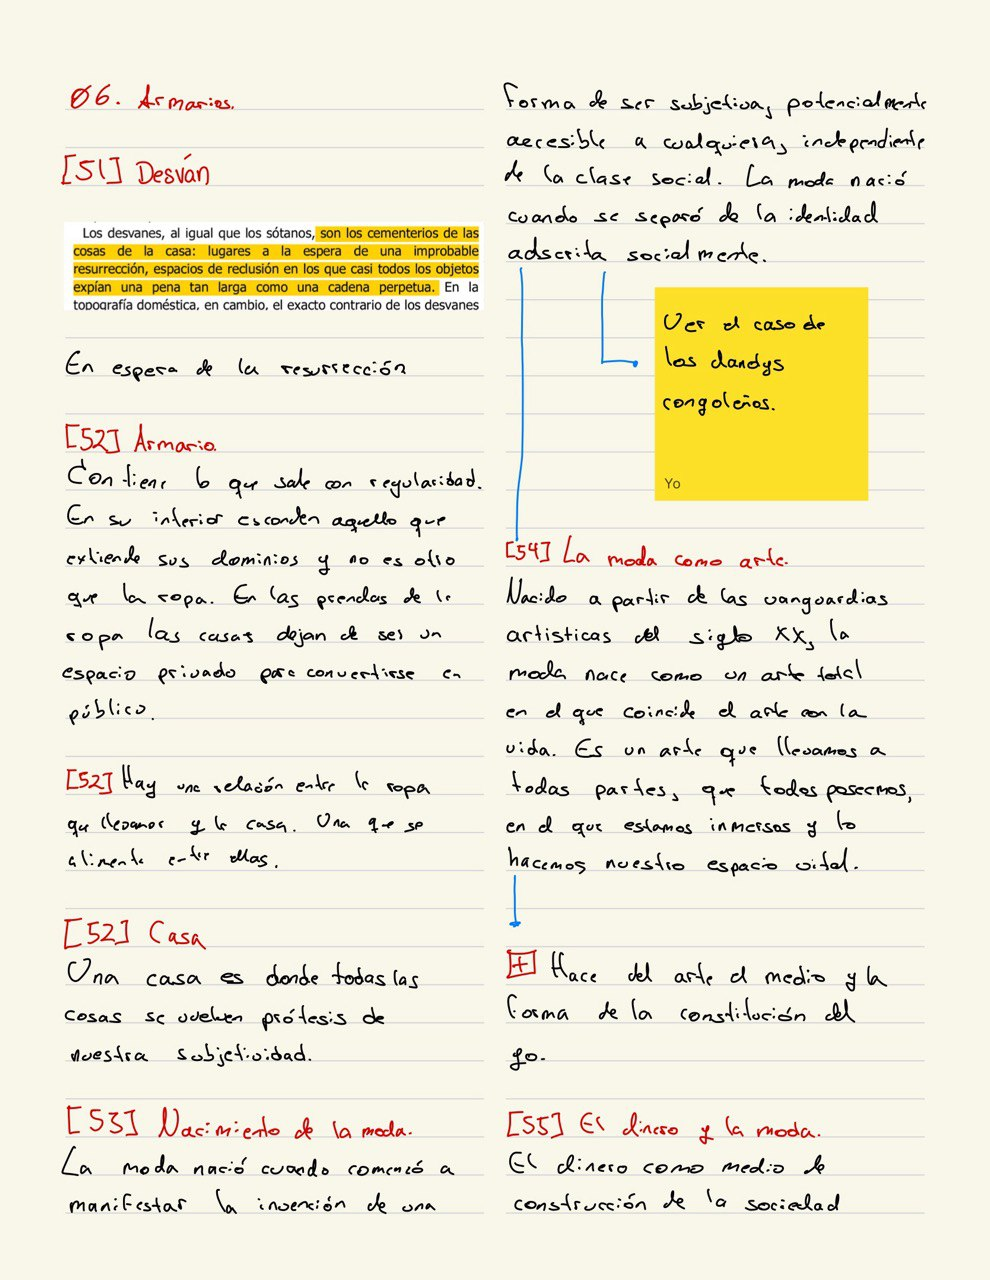 06. Armarios.
[51] Desván
Los desvanes, al igual que los sótanos, son los cementerios de las
cosas de la casa: lugares a la espera de una improbable
resurrección, espacios de reclusión en los que casi todos los objetos
expían una pena tan larga como una cadena perpetua. En la
topografía doméstica, en cambio, el exacto contrario de los desvanes
En espera de la resurrección
[52] Armario.
Contiene lo que sale con regularidad.
En su interior esconden aquello que
extiende sus dominios y no es otro
que la ropa. En las prendas de la
ropa las casas dejan de ser un
espacio privado para convertirse en
público.
[52] Hay una relación entre la ropa
que llevamos y la casa. Una que se
alimenta entre ellas.
[52] Casa
Una casa es donde todas las
cosas se vuelven prótesis de
nuestra subjetividad.
[53] Nacimiento de la moda.
La moda nació cuando comenzó a
manifestar la invención de una
forma de ser subjetiva, potencialmente
accesible a cualquiera, independiente
de la clase social. La moda nació
cuando se separó de la identidad
adscrita socialmente.
Ver el caso de
los dandys
congoleños.
Yo
[54] La moda como arte.
Nacido a partir de las vanguardias
artisticas del siglo XX, la
moda nace como un arte total
en el que coincide el arte con la
vida. Es un arte que llevamos a
todas partes, que todos poseemos,
en el que estamos inmersos y lo
hacemos nuestro espacio vital.
[+] Hace del arte el medio y la
forma de la constitución del
yo.
[55] El dinero y la moda.
El dinero como medio de
construcción de la sociedad